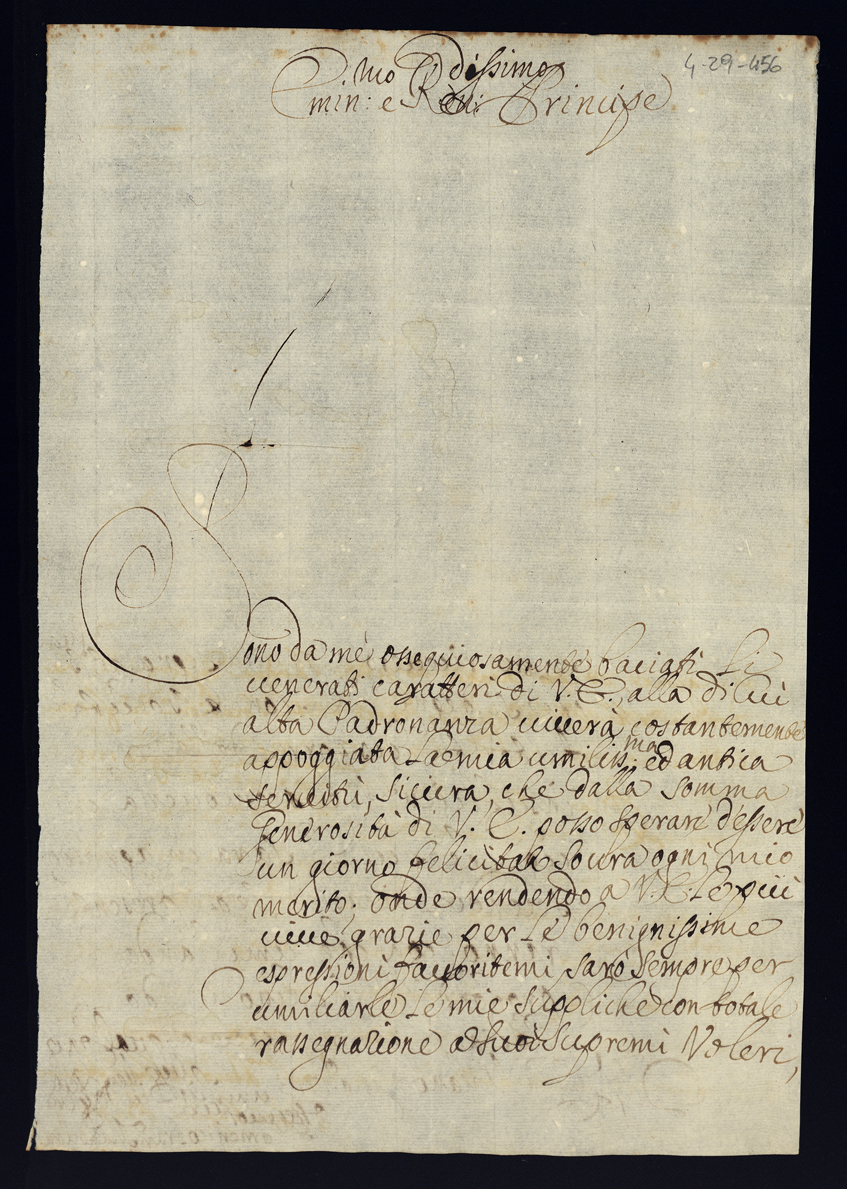 4-29-456
Emin:mo e Rev:dissimo Principe
Sono da me ossequiosamente baciati li
venerati caratteri di V. E., alla di lui
alta Padronanza vivera costantemente
appoggiata la mia umiliss:ma ed antica
servitù, sicura, che dalla somma
Generosità di V. E. posso sperare d'essere
un giorno felicitata sovra ogni mio
merito; onde rendendo a V. E. le più
vive grazie per le benignissime
espressioni favoritemi sarò sempre per
umiliarle le mie suppliche con totale
rassegnazione a suoi supremi Voleri,